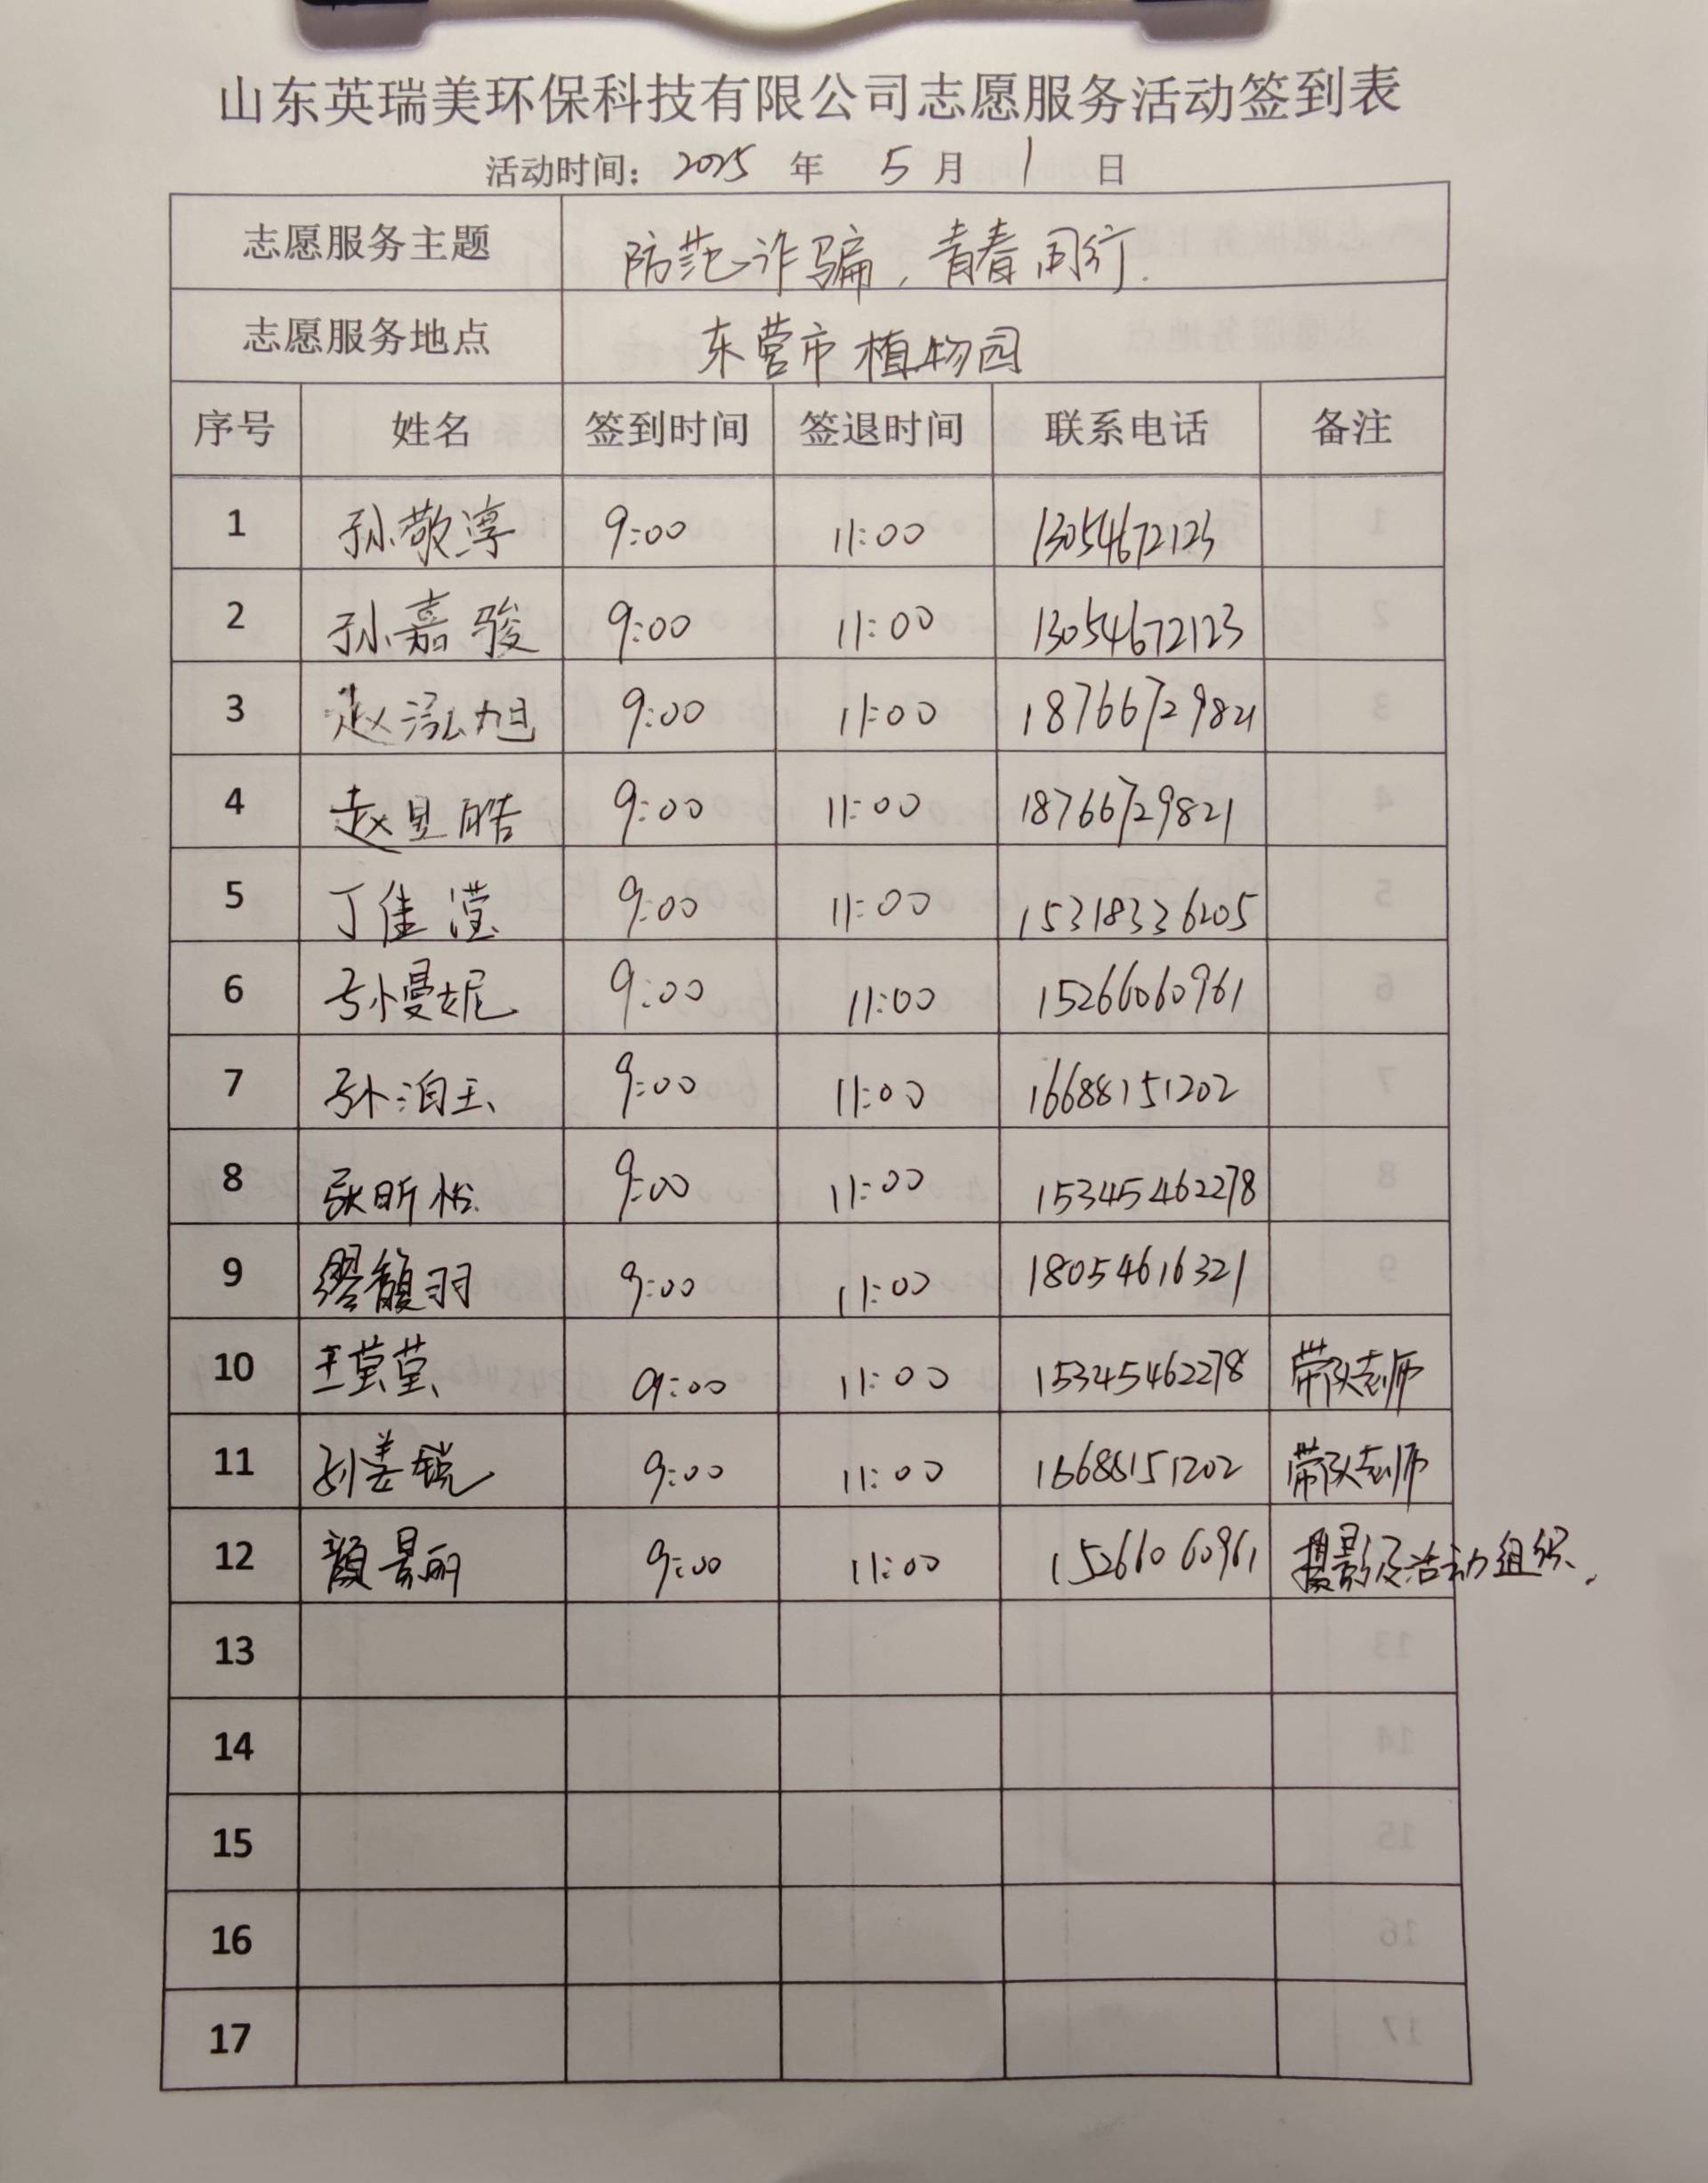 山东英瑞美环保科技有限公司志愿服务活动签到表
活动时间: 2025 年 5 月 1 日
志愿服务主题 防范诈骗，青春同行.
志愿服务地点 东营市植物园
序号 姓名 签到时间 签退时间 联系电话 备注
1 孙敬淳 9:00 11:00 13054672123
2 孙嘉骏 9:00 11:00 13054672123
3 赵泓旭 9:00 11:00 18766729821
4 赵昱皓 9:00 11:00 18766729821
5 丁佳滢 9:00 11:00 15318336205
6 孙慢妮 9:00 11:00 15266060961
7 孙洎玉 9:00 11:00 16688151202
8 张昕怡 9:00 11:00 15345462278
9 缪馥羽 9:00 11:00 18054616321
10 王莹莹 9:00 11:00 15345462278 带队老师
11 刘姜锐 9:00 11:00 16688151202 带队老师
12 颜景丽 9:00 11:00 15266060961 摄影及活动组织.
13
14
15
16
17